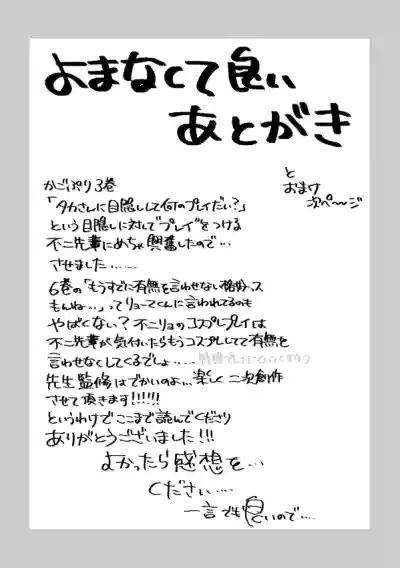 よまなくて良い
あとがき
と
おまけ
次ペ〜ジ
かごぷり3巻
「タカさんに目隠しして何のプレイだい?」
という目隠しに対して"プレイ"をつける
不二先輩にめちゃ興奮したので…
させました……
6巻の「もうすでに有無を言わせない格好っス
もんね…」ってリョーマくんに言われてるのも
やばくない?不二リョのコスプレプレイは
不二先輩が気付いたらもうコスプレしてて有無を
言わせなくしてくるでしょ……
先生監修はでかいのよ…楽しく二次創作
させて頂きます!!!!!!
というわけでここまで読んでくださり
ありがとうございました!!!
よかったら感想を…
ください……
一言でも良いので…